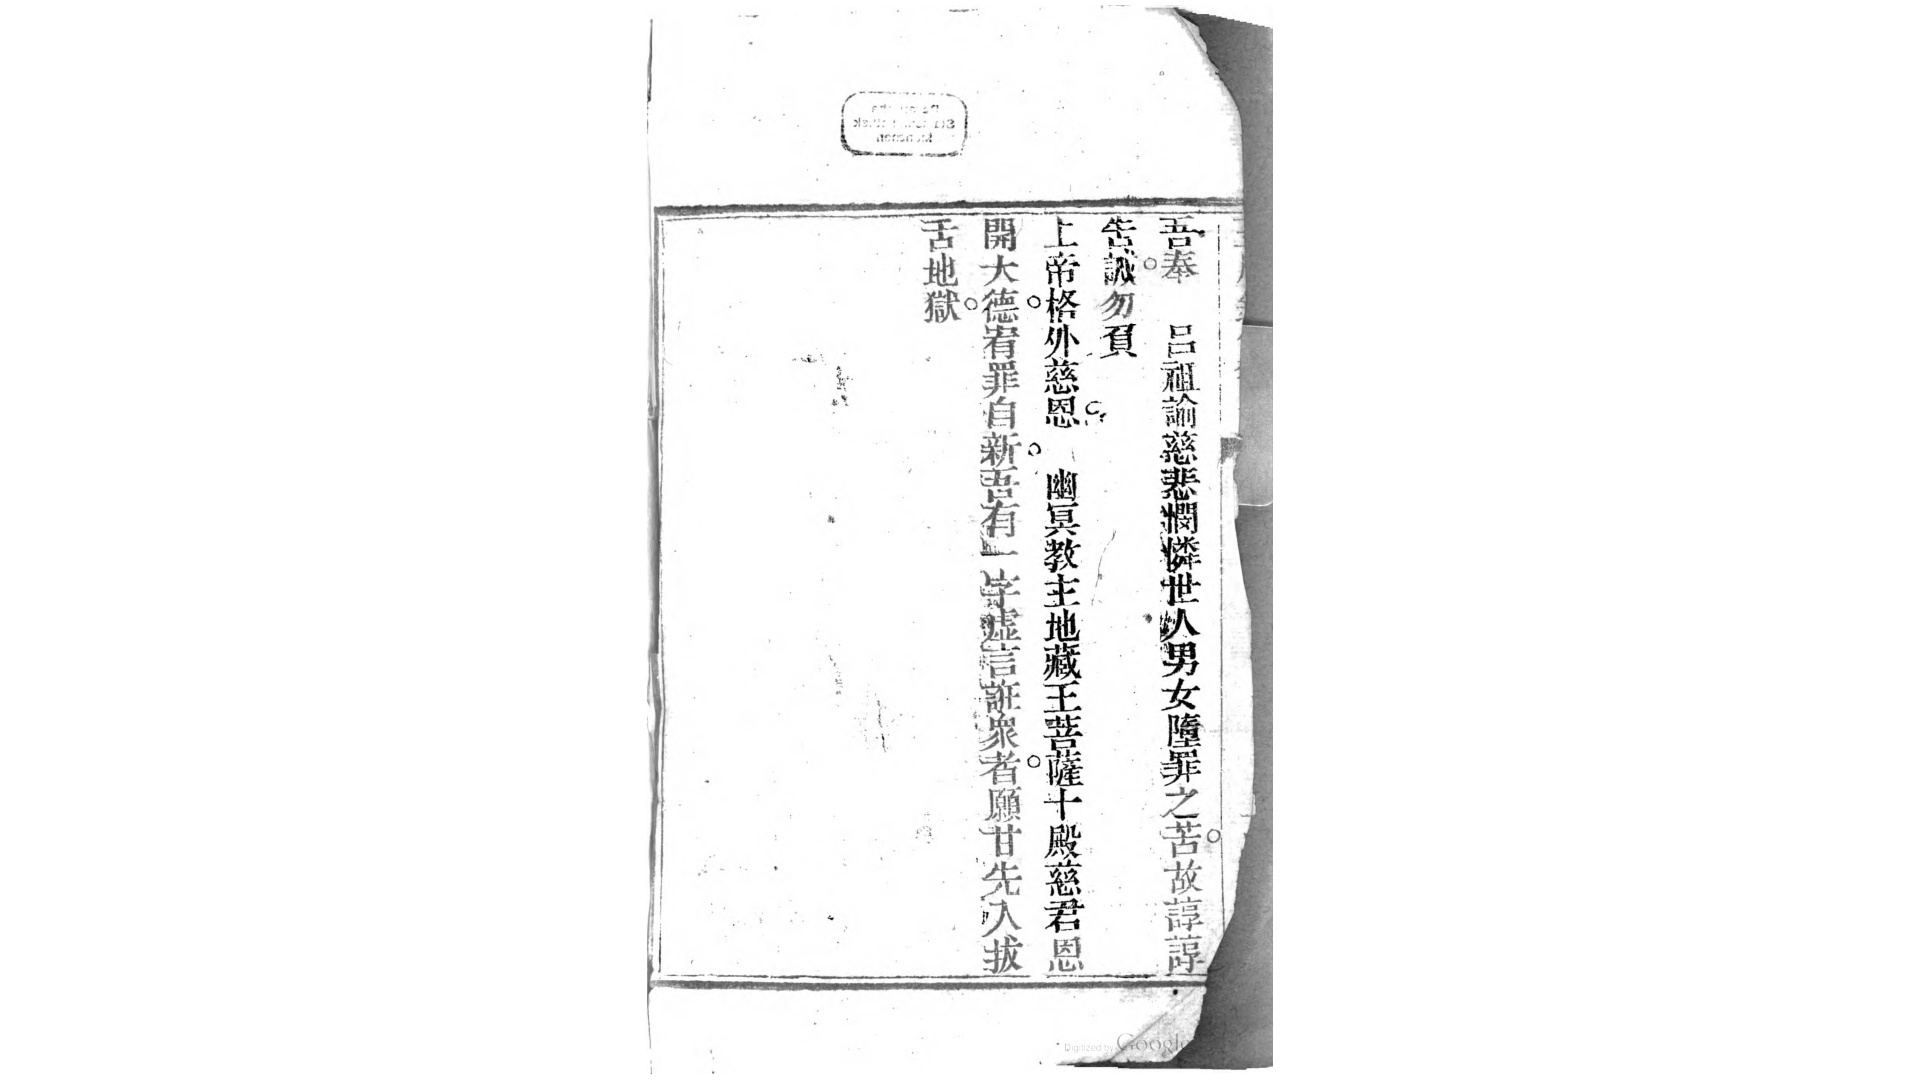 吾奉　呂祖諭慈悲憫憐世人男女墮罪之苦。故諄諄
告誡。勿負
上帝格外慈恩。幽冥教主地藏王菩薩十殿慈君恩
開大德。宥罪自新。吾有一字虛言誑衆者。願甘先入拔
舌地獄。
Digitized by Google